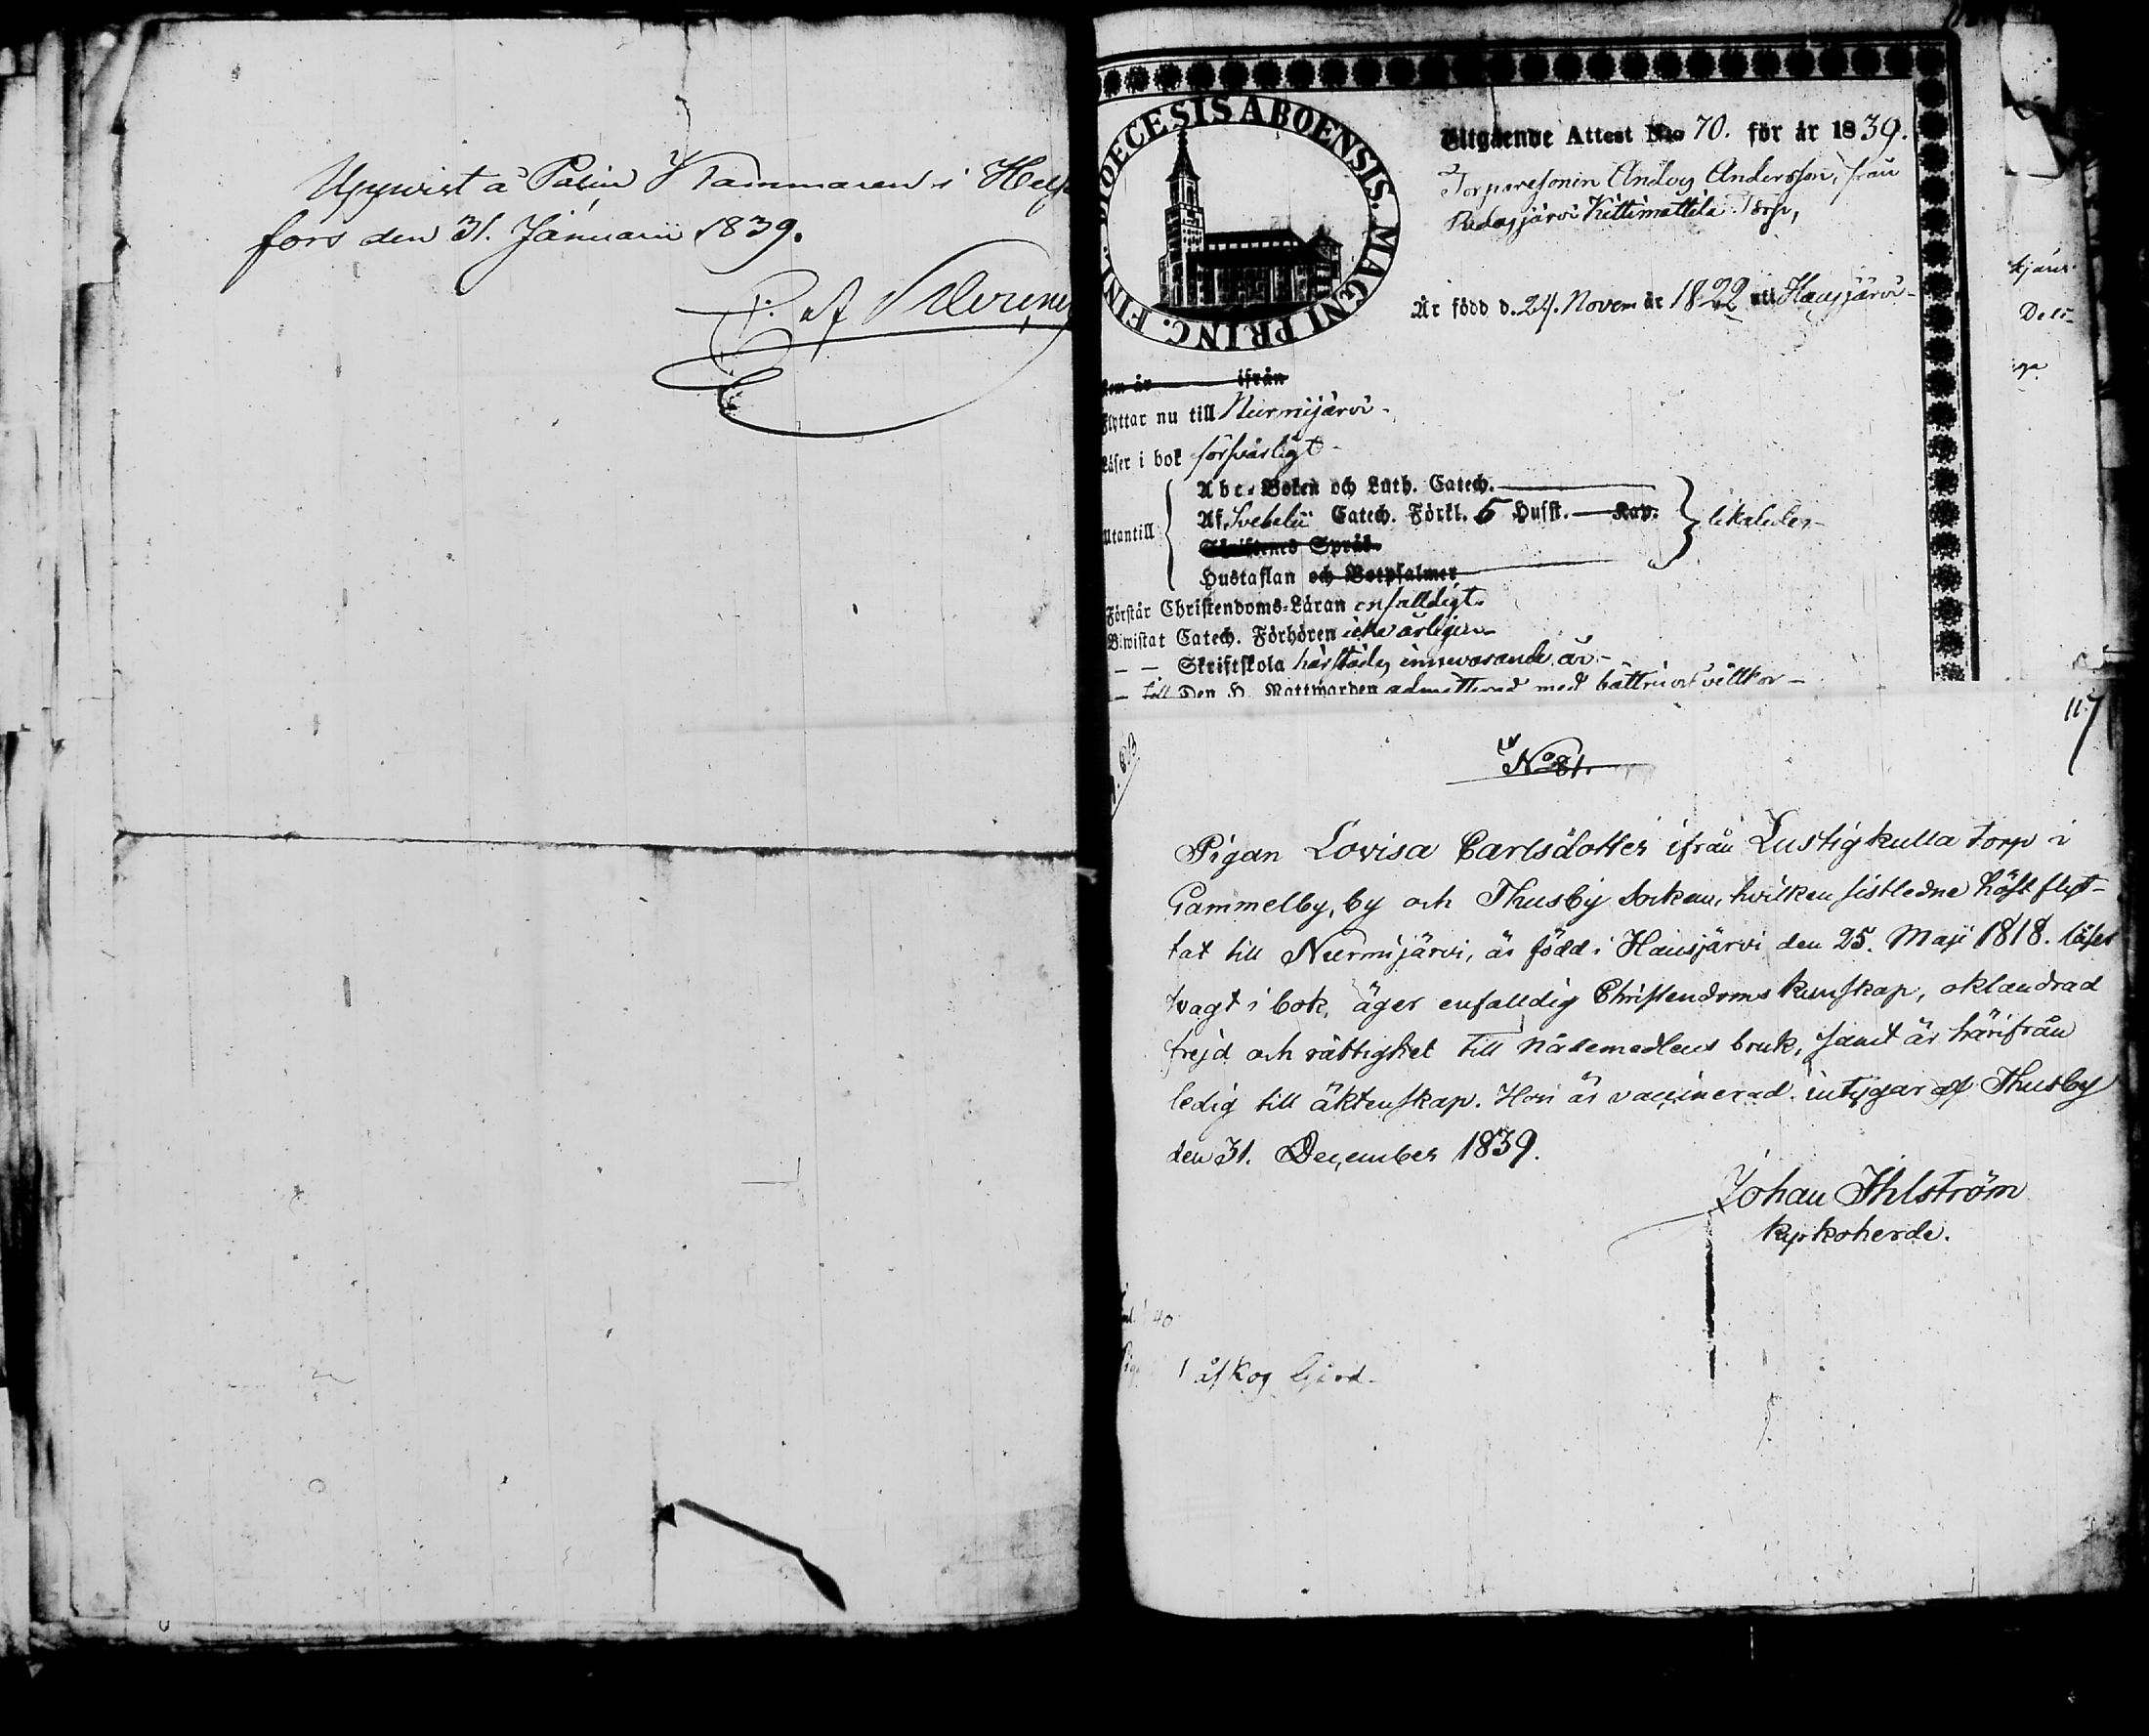 Uppvist å Polis Kammaren i Helsing
fors den 31. Januarii 1839.
DIOECESIS ABOENSIS. MAGNI PRINC. FINL.
Utgående Attest N:o 70. för år 1839.
Torparesonen Anders Andersson, från
Kittimattila Torp,
Är född d. 24. Novem år 1822 uti Hausjärvi -
kom år ifrån
Flyttar nu till Nurmijärvi -
Läser i bok försvarligt -
Utantill
Abc-Boken och Luth. Catech.
Af Svebelii Catech. Förkl. 5 Husst. Kap.
likaledes -
Skriftenes Språk.
Hustaflan och Botpsalmer
Förstår Christendoms-Läran enfalldigt.
Biwistat Catech. Förhören icke årligen -
— — Skriftskola härstädes innevarande år -
— till Den H. Nattwarden admitterad med bättrings villkor -
117
No 81.
Pigan Lovisa Carlsdotter ifrån Lustigkulla torp i
Gammelby, by och Thusby Socken, hvilken sistledne höst flyt-
tat till Nurmijärvi, är född i Hausjärvi den 25. Maji 1818. läser
svagt i bok, äger enfalldig Christendoms kunskap, oklandrad
frejd och rättighet till Nådemedlens bruk, samt är härifrån
ledig till äktenskap. Hon är vaccinerad. intygar af Thusby
den 31. December 1839.
Johan Ihlström
kyrkoherde.
40